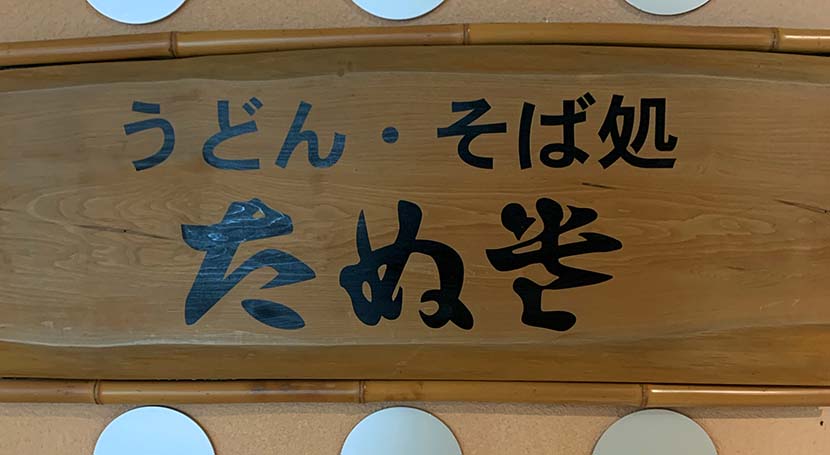 うどん・そば処
たぬき